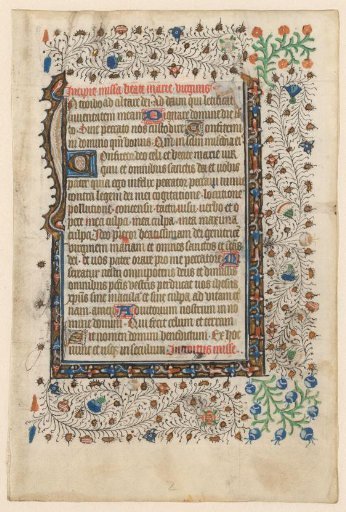 Incipit missa beate marie virginis
Et introibo ad altare dei Ad deum qui letificat
iuventutem meam Dignare domine die is
to Sine peccato nos custodire Confitemini
domino quoniam bonus Qm in seculum misericordia ei
Confiteor deo celi et beate marie vir
gini et omnibus sanctis dei et vobis
pater quia ego infelix peccator peccavi nimis
contra legem dei mei cogitatione locutione
pollutione consensu tactu visu verbo et o
pere mea culpa mea culpa mea maxima
culpa Ideo precor beatissimam dei genitricem
virginem mariam et omnes sanctos et sctas
dei et vos pater orare pro me peccatore M
sereatur vestri omnipotens deus et dimissis
omnibus pctis vestris perducat vos christus
sine macula et sine culpa ad vitam et
nam amen Adiutorium nostrum in no
mine domini Qui fecit celum et terram
Sit nomen domini benedictum Ex hoc
nunc et usqz in seculum Introitus misse